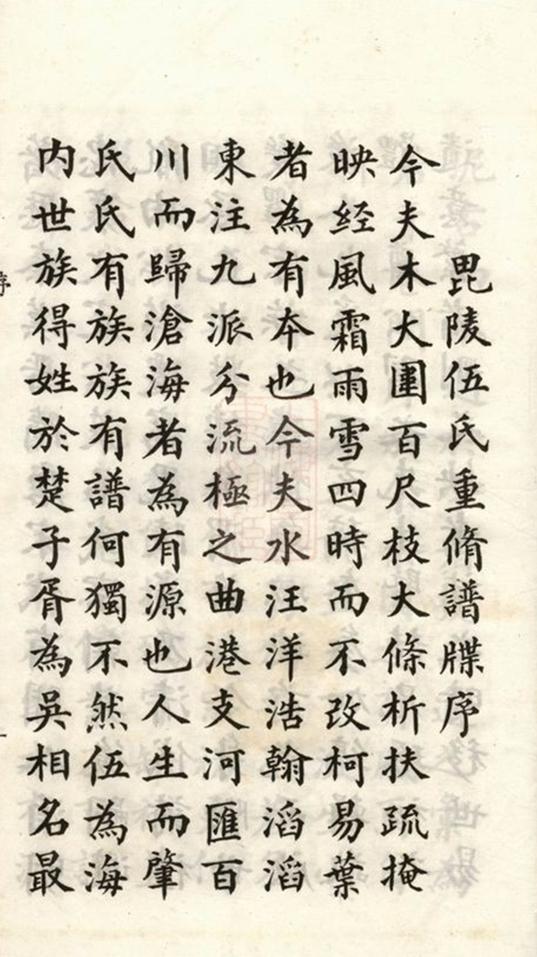 毘陵伍氏重脩譜牒序
今夫木大圍百尺枝大條析扶疏掩
映经風霜雨雪四時而不改柯易葉
者為有夲也今夫水汪洋浩翰滔滔
東注九派分流極之曲港支河匯百
川而歸滄海者為有源也人生而肇
氏氏有族族有譜何獨不然伍為海
内世族得姓於楚子胥為吳相名最
序
一